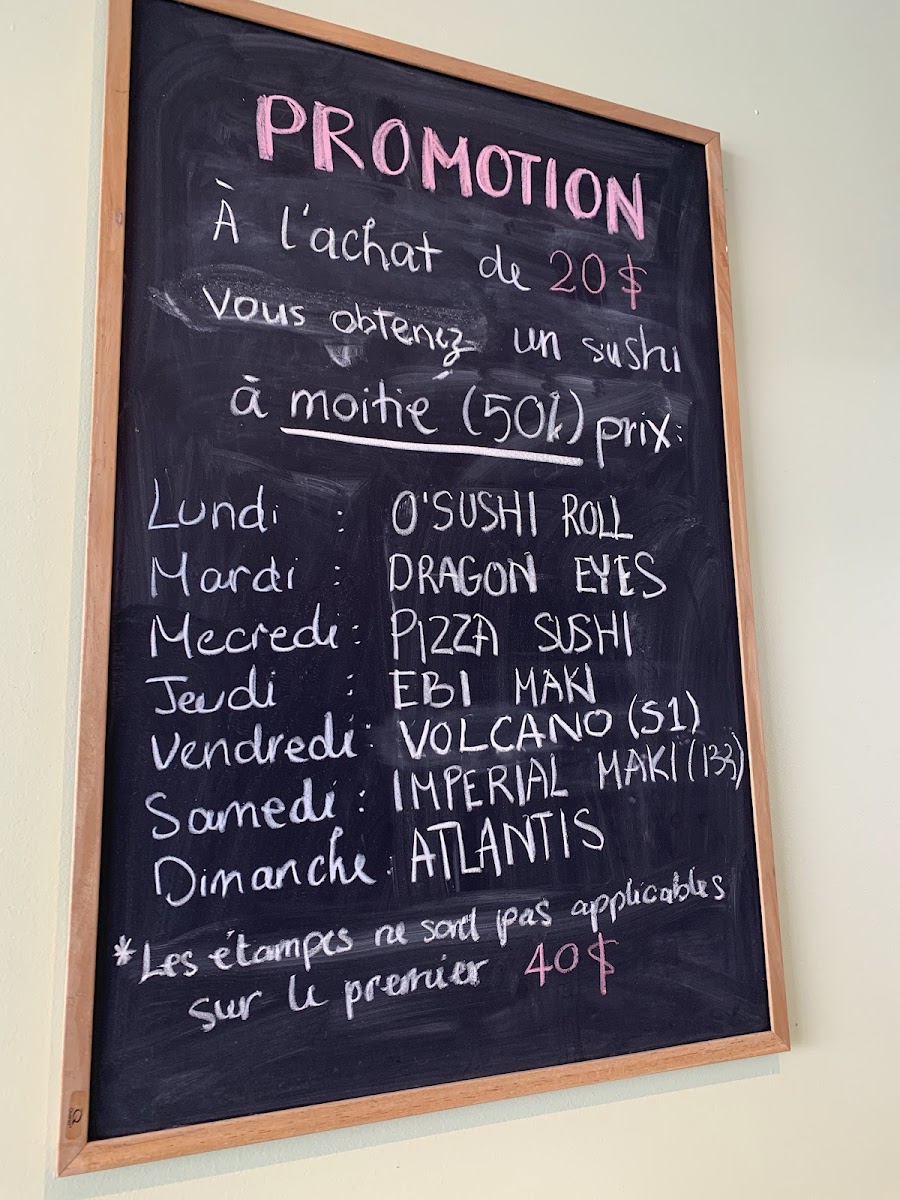 PROMOTION
À l'achat de 20$
vous obtenez un sushi
à moitié (50%) prix:
Lundi : O'SUSHI ROLL
Mardi : DRAGON EYES
Mecredi : PIZZA SUSHI
Jeudi : EBI MAKI
Vendredi : VOLCANO (51)
Samedi : IMPERIAL MAKI (133)
Dimanche : ATLANTIS
*Les étampes ne sont pas applicables
sur le premier 40$